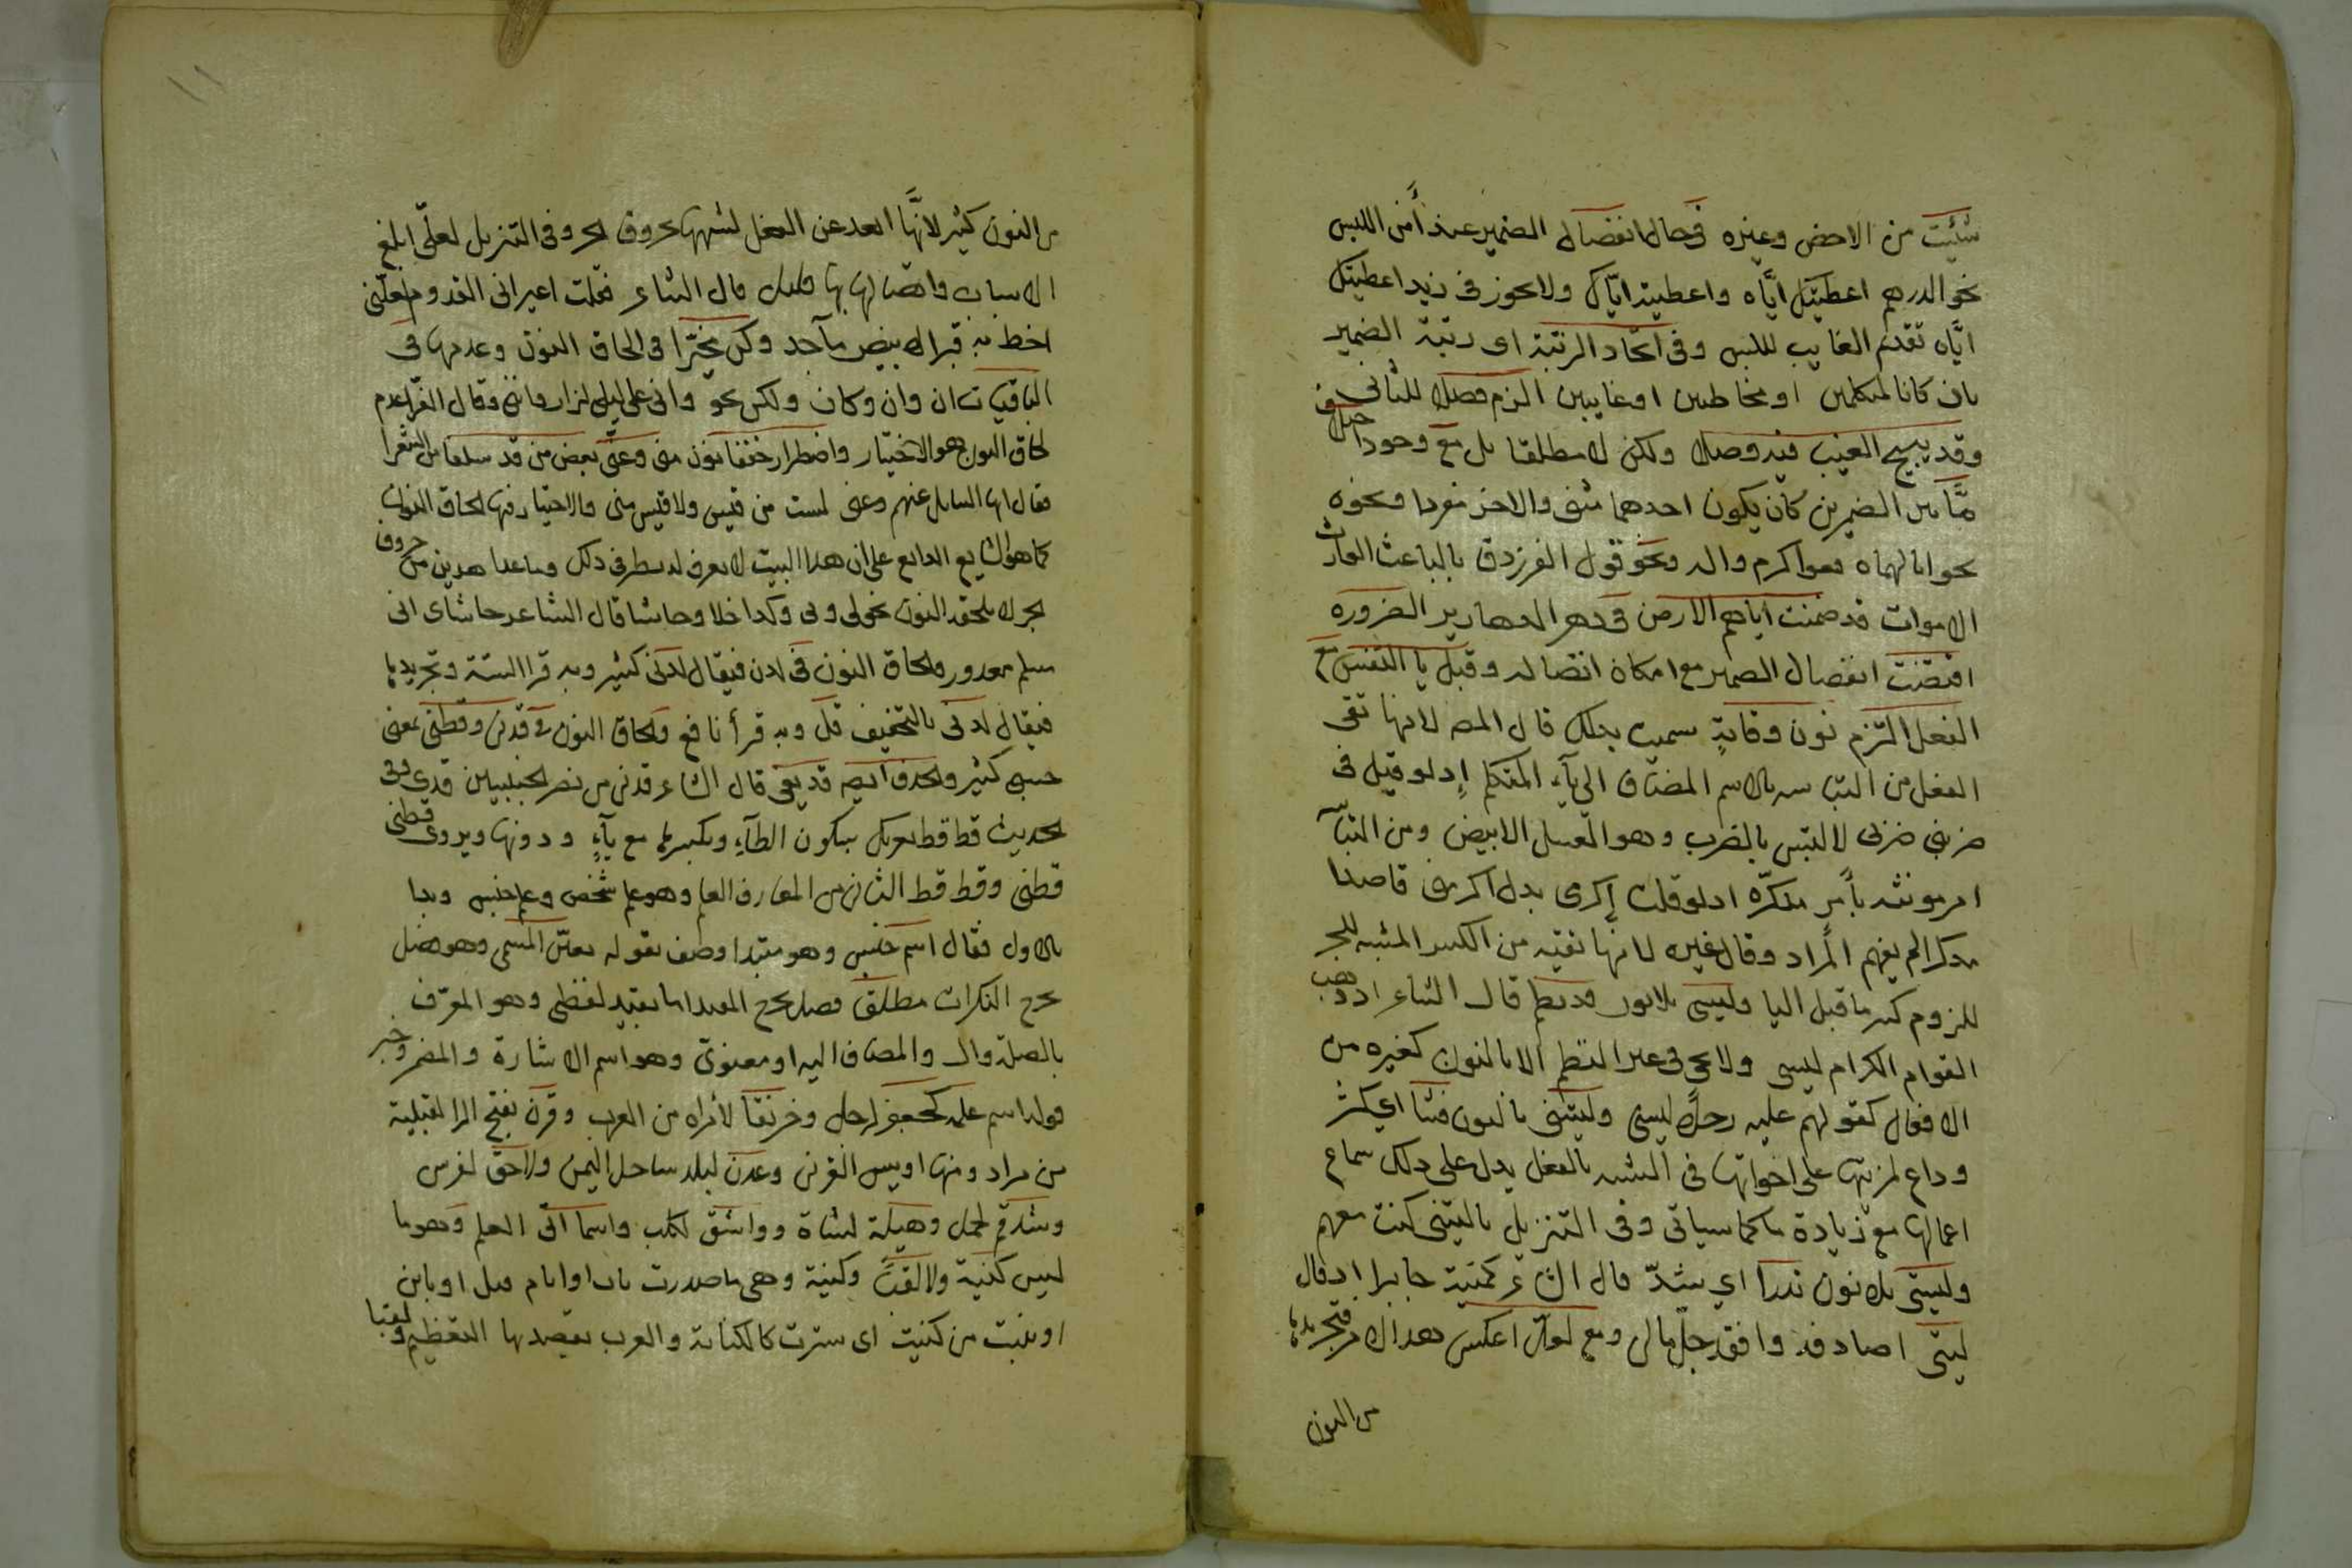 شئيت من الاخص وغيره في حال انفصال الضمير عند أمن اللبس
نحو الدرهم اعطيتك ايّاه واعطيته ايّاك ولا يجوز في زيد اعطيتك
ايّاه تقدم الغايب للبس وفي اتحاد الرتبة اى رتبة الضمير
بان كانا لمتكلمين او مخاطبين او غايبين الزم فصلا للثاني
وقد يبيح الغيب فيه وصلا ولكن لا مطلقا بل مع وجود اختلاف
مّا بين الضميرين كان يكون احدهما مثنى والاخر مفردا ونحوه
نحو انالهماه قفوا كرم والد ونحو قول الفرزدق بالباعث الوارث
الاموات قد ضمنت اياهم الارض في دهر الدهارير الضروره
اقتضت انفصال الضمير مع امكان اتصاله وقبل يا النفس مع
الفعل التزم نون وقاية سميت بذلك قال المصـ لانها تقى
الفعل من التباسه بالاسم المضاف الى يآء المتكلم إذ لو قيل في
ضربني ضربي لالتبس بالضرب وهو العسل الابيض ومن التبآس
امر مونثه بأمر مذكره اذ لو قلت إكرمى بدل اكرمنى قاصدا
مذكرا لم يفهم المراد وقال غيره لانها تقيه من الكسر المشبه للجر
للزوم كسر ما قبل اليا وليسى بلا نون قد نظم قال الشاعر اذ ذهب
القوام الكرام ليسى ولا يجى في غير النظم الا بالنون كغيره من
الافعال كقولهم عليه رجلاً ليسنى وليتنى بالنون فشا اي كثر
وذاع لمزيتها على اخواتها في الشبه بالفعل يدل على ذلك سماع
اعمالها مع زيادة ما كما سياتى وفى التنزيل ياليتنى كنت معهم
وليتى بلا نون ندرا اي شذّ قال الشاعر كمنية جابر اذ قال
ليتى اصادفه وافقد جلّ مالى ومع لعل اعكس هذا الامر فتجريدها
من النون
من النون كثير لانّها ابعد عن الفعل لشبهها بحروف الجر وفى التنزيل لعلّى ابلغ
الاسباب واتصالها بها قليل قال الشاعر فقلت اعيرانى القدوم لعلّنى
اخط به قبرا لابيض ماجد وكن مخيّرا في الحاق النون وعدمها في
الباقيات ان وان وكان ولكن نحو وانى على ليلى لزار وانني وقال الفرّا عدم
لحاق النون هو الاختيار واضطرارا خففا نون منى وعنّى بعض من قد سلفا من الشعرا
فقال ايها السايل عنهم وعنى لست من قيس ولا قيس منى والاختيار فيها لحاق النون
كما هو الشايع الذايع على ان هذا البيت لا يعرف له نظير في ذلك وما عدا هذين من حروف
الجر لا تلحقه النون نحو لى وبى وكذا خلا وحاشا قال الشاعر حاشاى انى
مسلم معذور ولحاق النون في لدن فيقال لدنّى كثير وبه قرا الستة وتجريدها
فيقال لدنى بالتخفيف قلّ وبه قرأ نافع ولحاق النون في قدنى وقطنى بمعنى
حسبى كثير والحذف ايضا قد يفى قال الشاعر قدنى من نصر الخبيبين قدى وفى
الحديث قط قط بعزتك بسكون الطآء وبكسرها مع يآء ودونها ويروى قطنى
قطنى وقط قط الثانى من المعارف العلم وهو علم شخص وعلم جنس وبدا
بالاول فقال اسم جنس وهو مبتدا وصف بقوله يعيّن المسمى وهو فصل
يخرج النكرات مطلقا فصل يخرج المقيدات اما بقيد لفظى وهو المعرّف
بالصلة وال والمضاف اليه او معنوى وهو اسم الاشارة والمضمر وخبر
قوله اسم علمه كجعفر لرجل وخرنقا لامراه من العرب وقرن بفتح الرا لقبيلة
من مراد ومنها اويس القرنى وعدن لبلد ساحل اليمن ولاحق لفرس
وشذقم لجمل وهيلة لشاة وواشق لكلب واسما اتى العلم وهو ما
ليس كنية ولا لقباً وكنية وهى ما صدرت باب او ام قيل او بابن
او بنت من كنيت اى سترت كالكناية والعرب يقصد بها التعظيم ولقبا